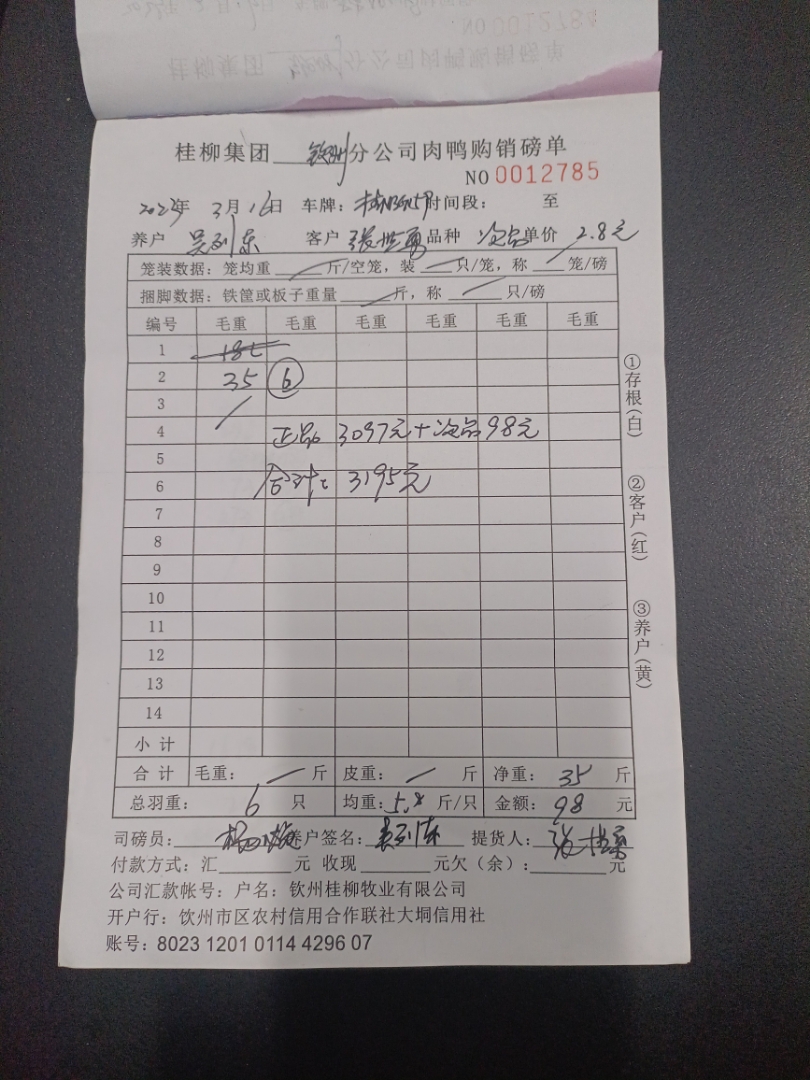 桂柳集团 钦州 分公司肉鸭购销磅单
NO 0012785
年 3月16日 车牌: 时间段: 至
养户 吴列东 客户 张世勇 品种 次品 单价 2.8元
笼装数据:笼均重 斤/空笼,装 只/笼,称 笼/磅
捆脚数据:铁筐或板子重量 斤,称 只/磅
编号 毛重 毛重 毛重 毛重 毛重 毛重
1
2 35 6
3
4 正品 3097元+次品98元
5
6 合计: 3195元
7
8
9
10
11
12
13
14
小计
合计 毛重: 斤 皮重: 斤 净重: 35 斤
总羽重: 6 只 均重:5.8 斤/只 金额: 98 元
司磅员: 养户签名: 吴列东 提货人:
付款方式:汇 元 收现 元欠(余): 元
公司汇款帐号:户名:钦州桂柳牧业有限公司
开户行:钦州市区农村信用合作联社大垌信用社
账号:8023 1201 0114 4296 07
①存根(白)
②客户(红)
③养户(黄)